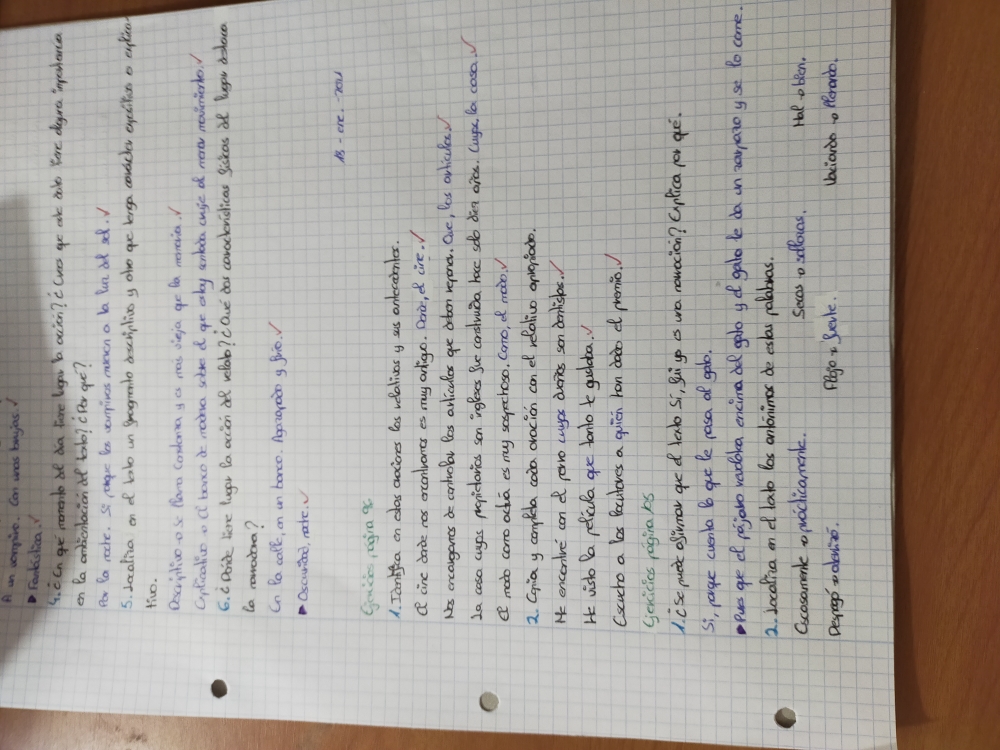 A un vampiro. Con unas tarjas. ✓
▶ Fantástica. ✓
4. ¿En qué momento del día tiene lugar la acción? ¿Crees que este dato tiene alguna importancia
en la ambientación del texto? ¿Por qué?
Por la noche. Sí, porque los vampiros mueren a la luz del sol. ✓
5. Localiza en el texto un fragmento descriptivo y otro que tenga carácter expositivo o explica-
tivo.
Descriptivo → Se llama Constanza y es más vieja que la momia. ✓
Explicativo → El banco de madera sobre el que estoy sentada cruje al menor movimiento. ✓
6. ¿Dónde tiene lugar la acción del relato? ¿Qué dos características físicas del lugar destaca
la narradora?
En la calle, en un banco. Agazapado y frío. ✓
▶ Oscuridad, noche. ✓
ene.
Ejercicios página 96
1. Identifica en estas oraciones los relativos y sus antecedentes.
El cine donde nos encontramos es muy antiguo. Donde, el cine. ✓
Nos encargamos de controlar los artículos que deben reponer. Que, los artículos. ✓
La casa cuyos propietarios son ingleses fue construida hace solo diez años. Cuyos, la casa. ✓
El modo como actúa es muy sospechoso. Como, el modo. ✓
2. Copia y completa cada oración con el relativo apropiado.
Me encontré con el perro cuyos dueños son dentistas. ✓
He visto la película que tanto te gustaba. ✓
Escucho a los locutores a quien han dado el premio. ✓
Ejercicios página 105
1. ¿Se puede afirmar que el texto Sí, fui yo es una narración? Explica por qué.
Sí, porque cuenta lo que le pasa al gato.
▶ Pues que el pájaro revolotea encima del gato y el gato le da un zarpazo y se lo come.
2. Localiza en el texto los antónimos de estas palabras.
Escasamente → prácticamente. Secas → jugosas. Mal → bien.
Despegó → aterrizó. Flojo → fuerte. Vaciando → llenando.